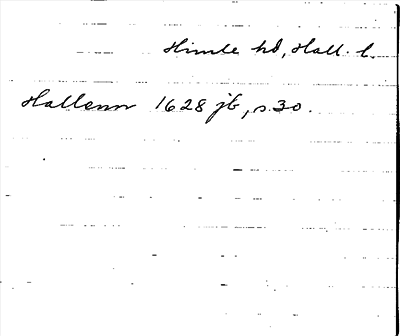 Himle hd, Hall. l.
Hallenn 1628 jb, s. 30.